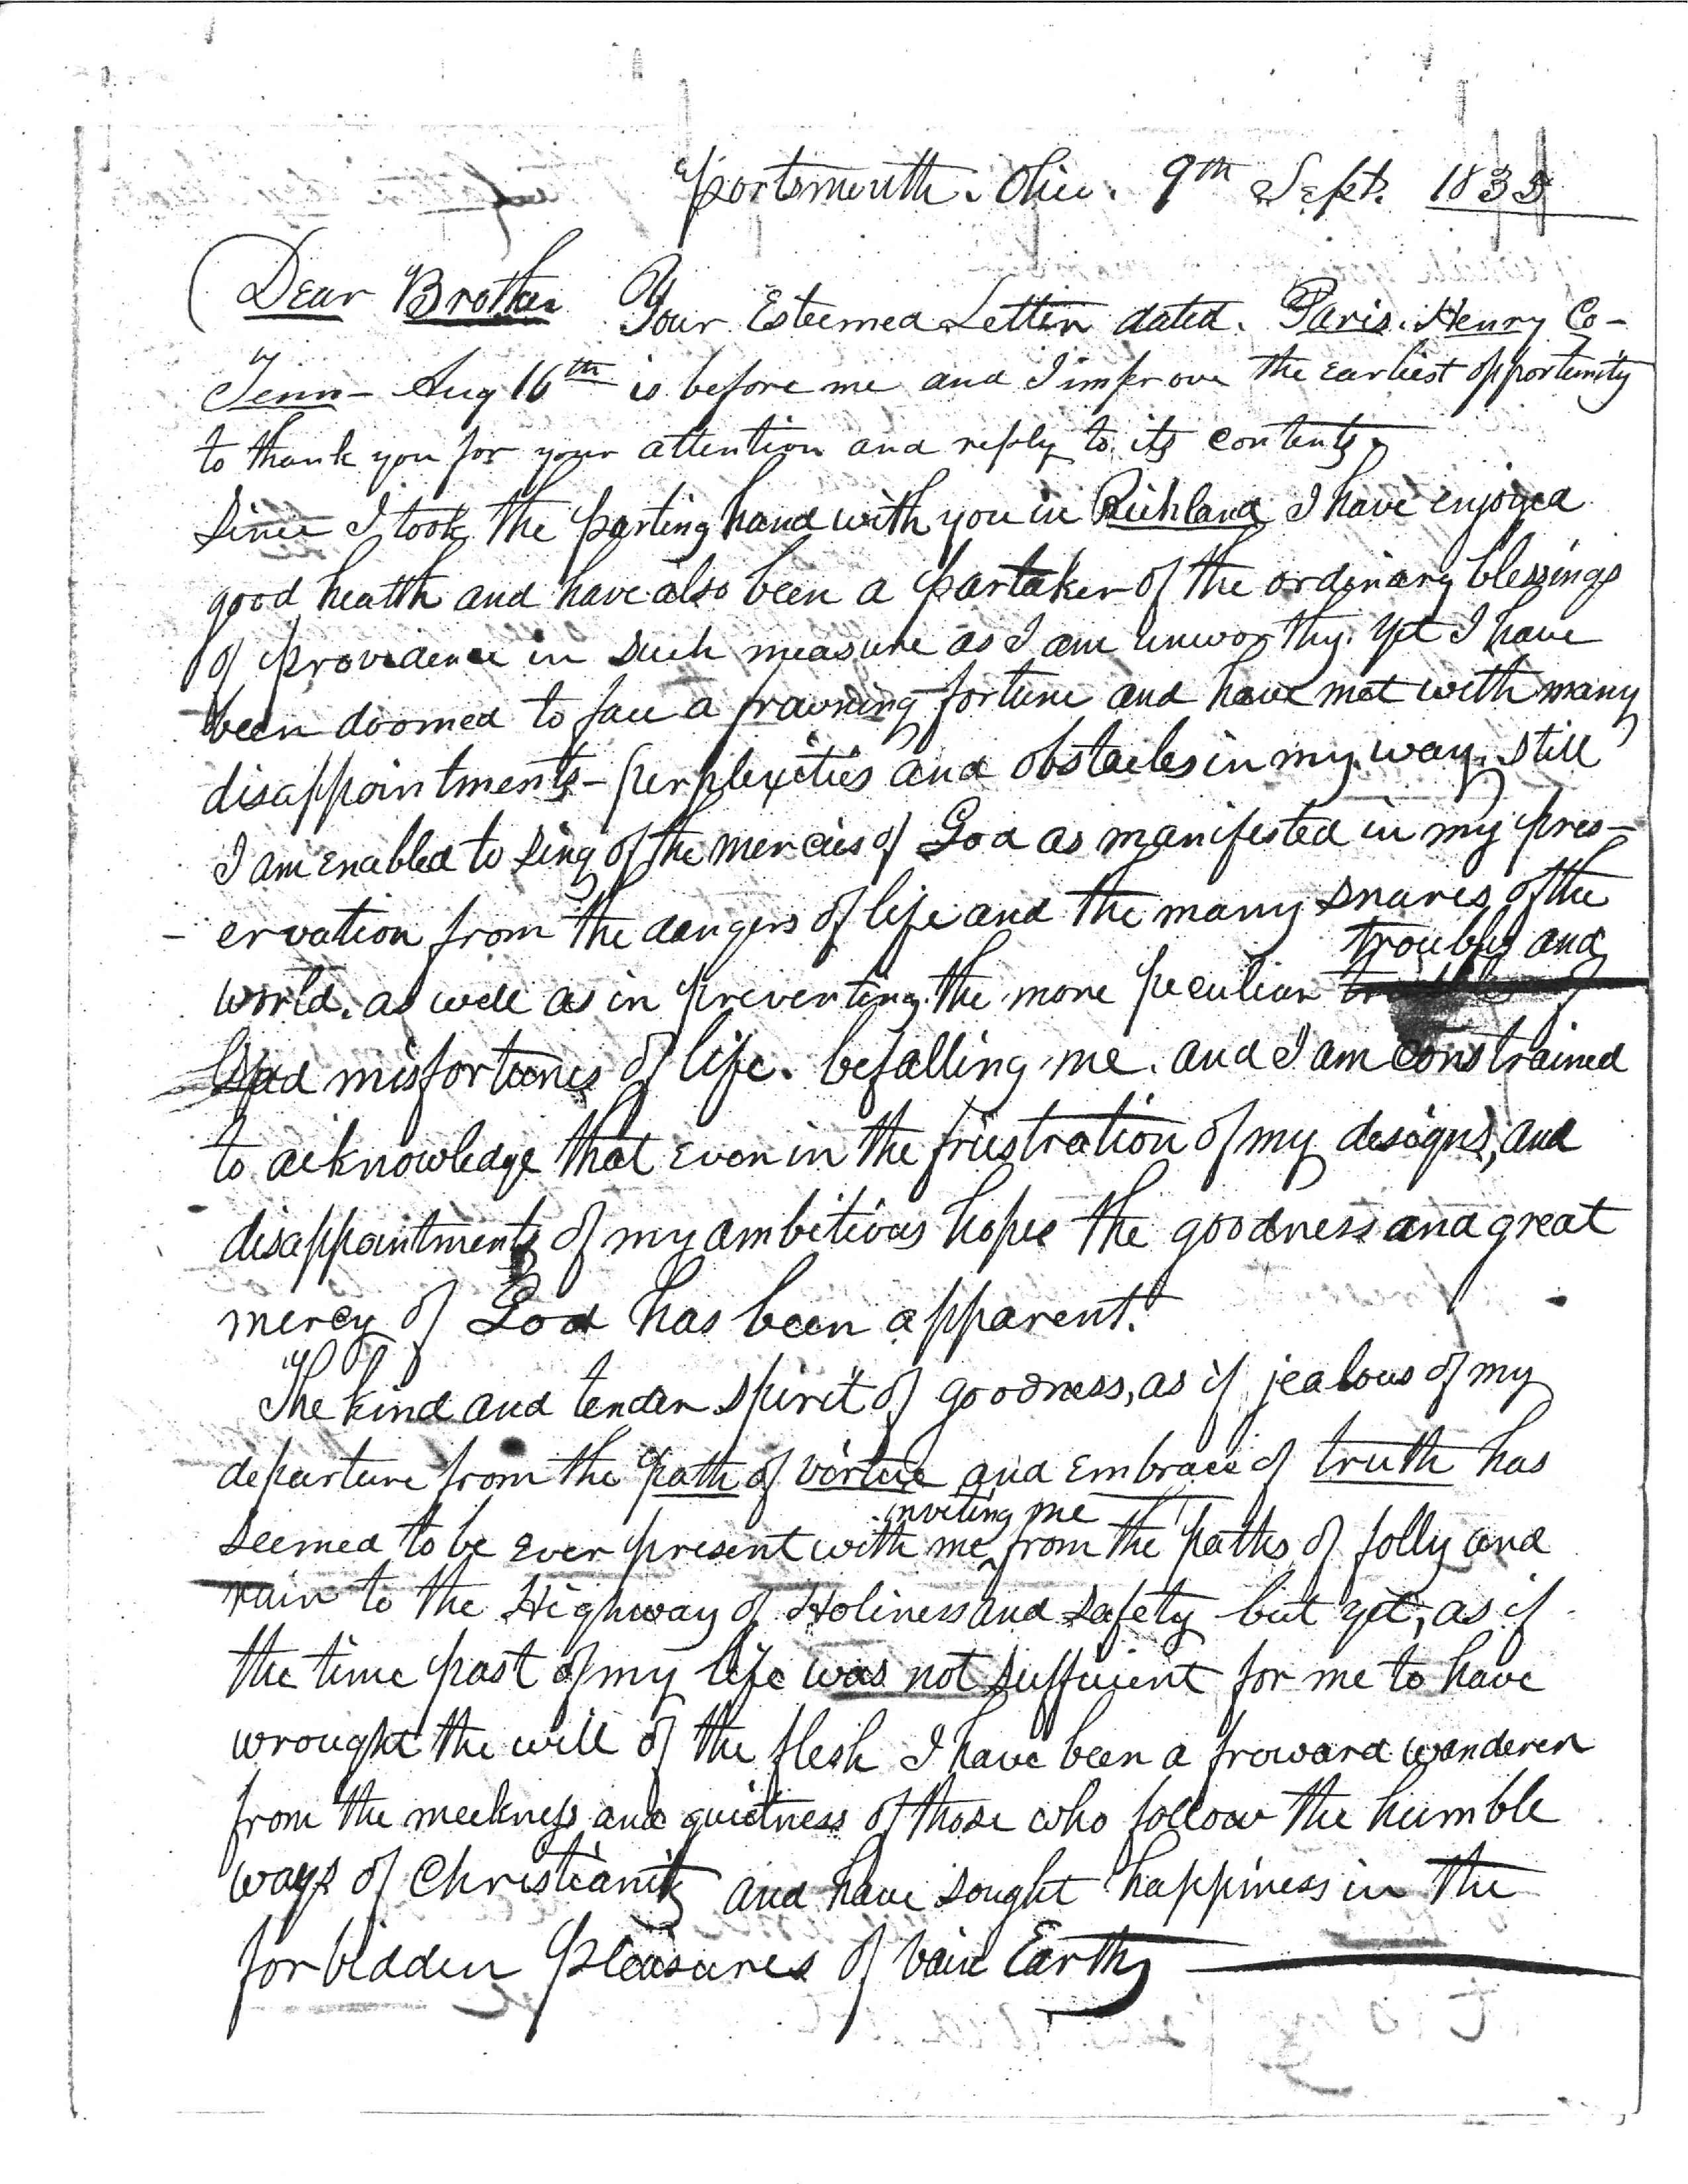 Portsmouth. Ohio. 9th Sept. 1835
Dear Brother Your Esteemed Letter dated. Paris. Henry Co-
Tenn- Aug 16th is before me and I improve the earliest opportunity
to thank you for your attention and reply to its contents,
Since I took the parting hand with you in Richland I have enjoyed
good health and have also been a partaker of the ordinary blessings
of providence in such measure as I am unworthy. Yet I have
been doomed to face a frowning fortune and have met with many
disappointments - perplexities and obstacles in my way. still
I am enabled to sing of the mercies of God as manifested in my pres-
ervation from the dangers of life and the many snares of the
troubles and
world. as well as in preventing the more peculiar
sad misfortunes of life. befalling me. and I am constrained
to acknowledge that even in the frustration of my designs, and
disappointments of my ambitious hopes the goodness and great
mercy of God has been apparent.
The kind and tender spirit of goodness, as if jealous of my
departure from the path of virtue and embrace of truth has
inviting me
seemed to be ever present with me from the paths of folly and
ruin to the Highway of Holiness and safety but yet, as if
the time past of my life was not sufficient for me to have
wrought the will of the flesh I have been a froward wanderer
from the meekness and quietness of those who follow the humble
ways of Christianity and have sought happiness in the
forbidden pleasures of vain Earth